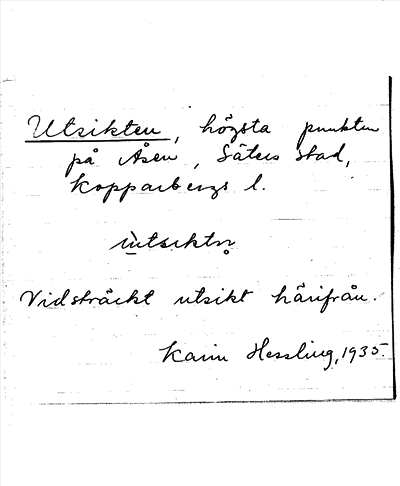 Utsikten, högsta punkten
på Åsen, Säters stad,
Kopparbergs l.
Vidsträckt utsikt härifrån.
Karin Hessling, 1935.